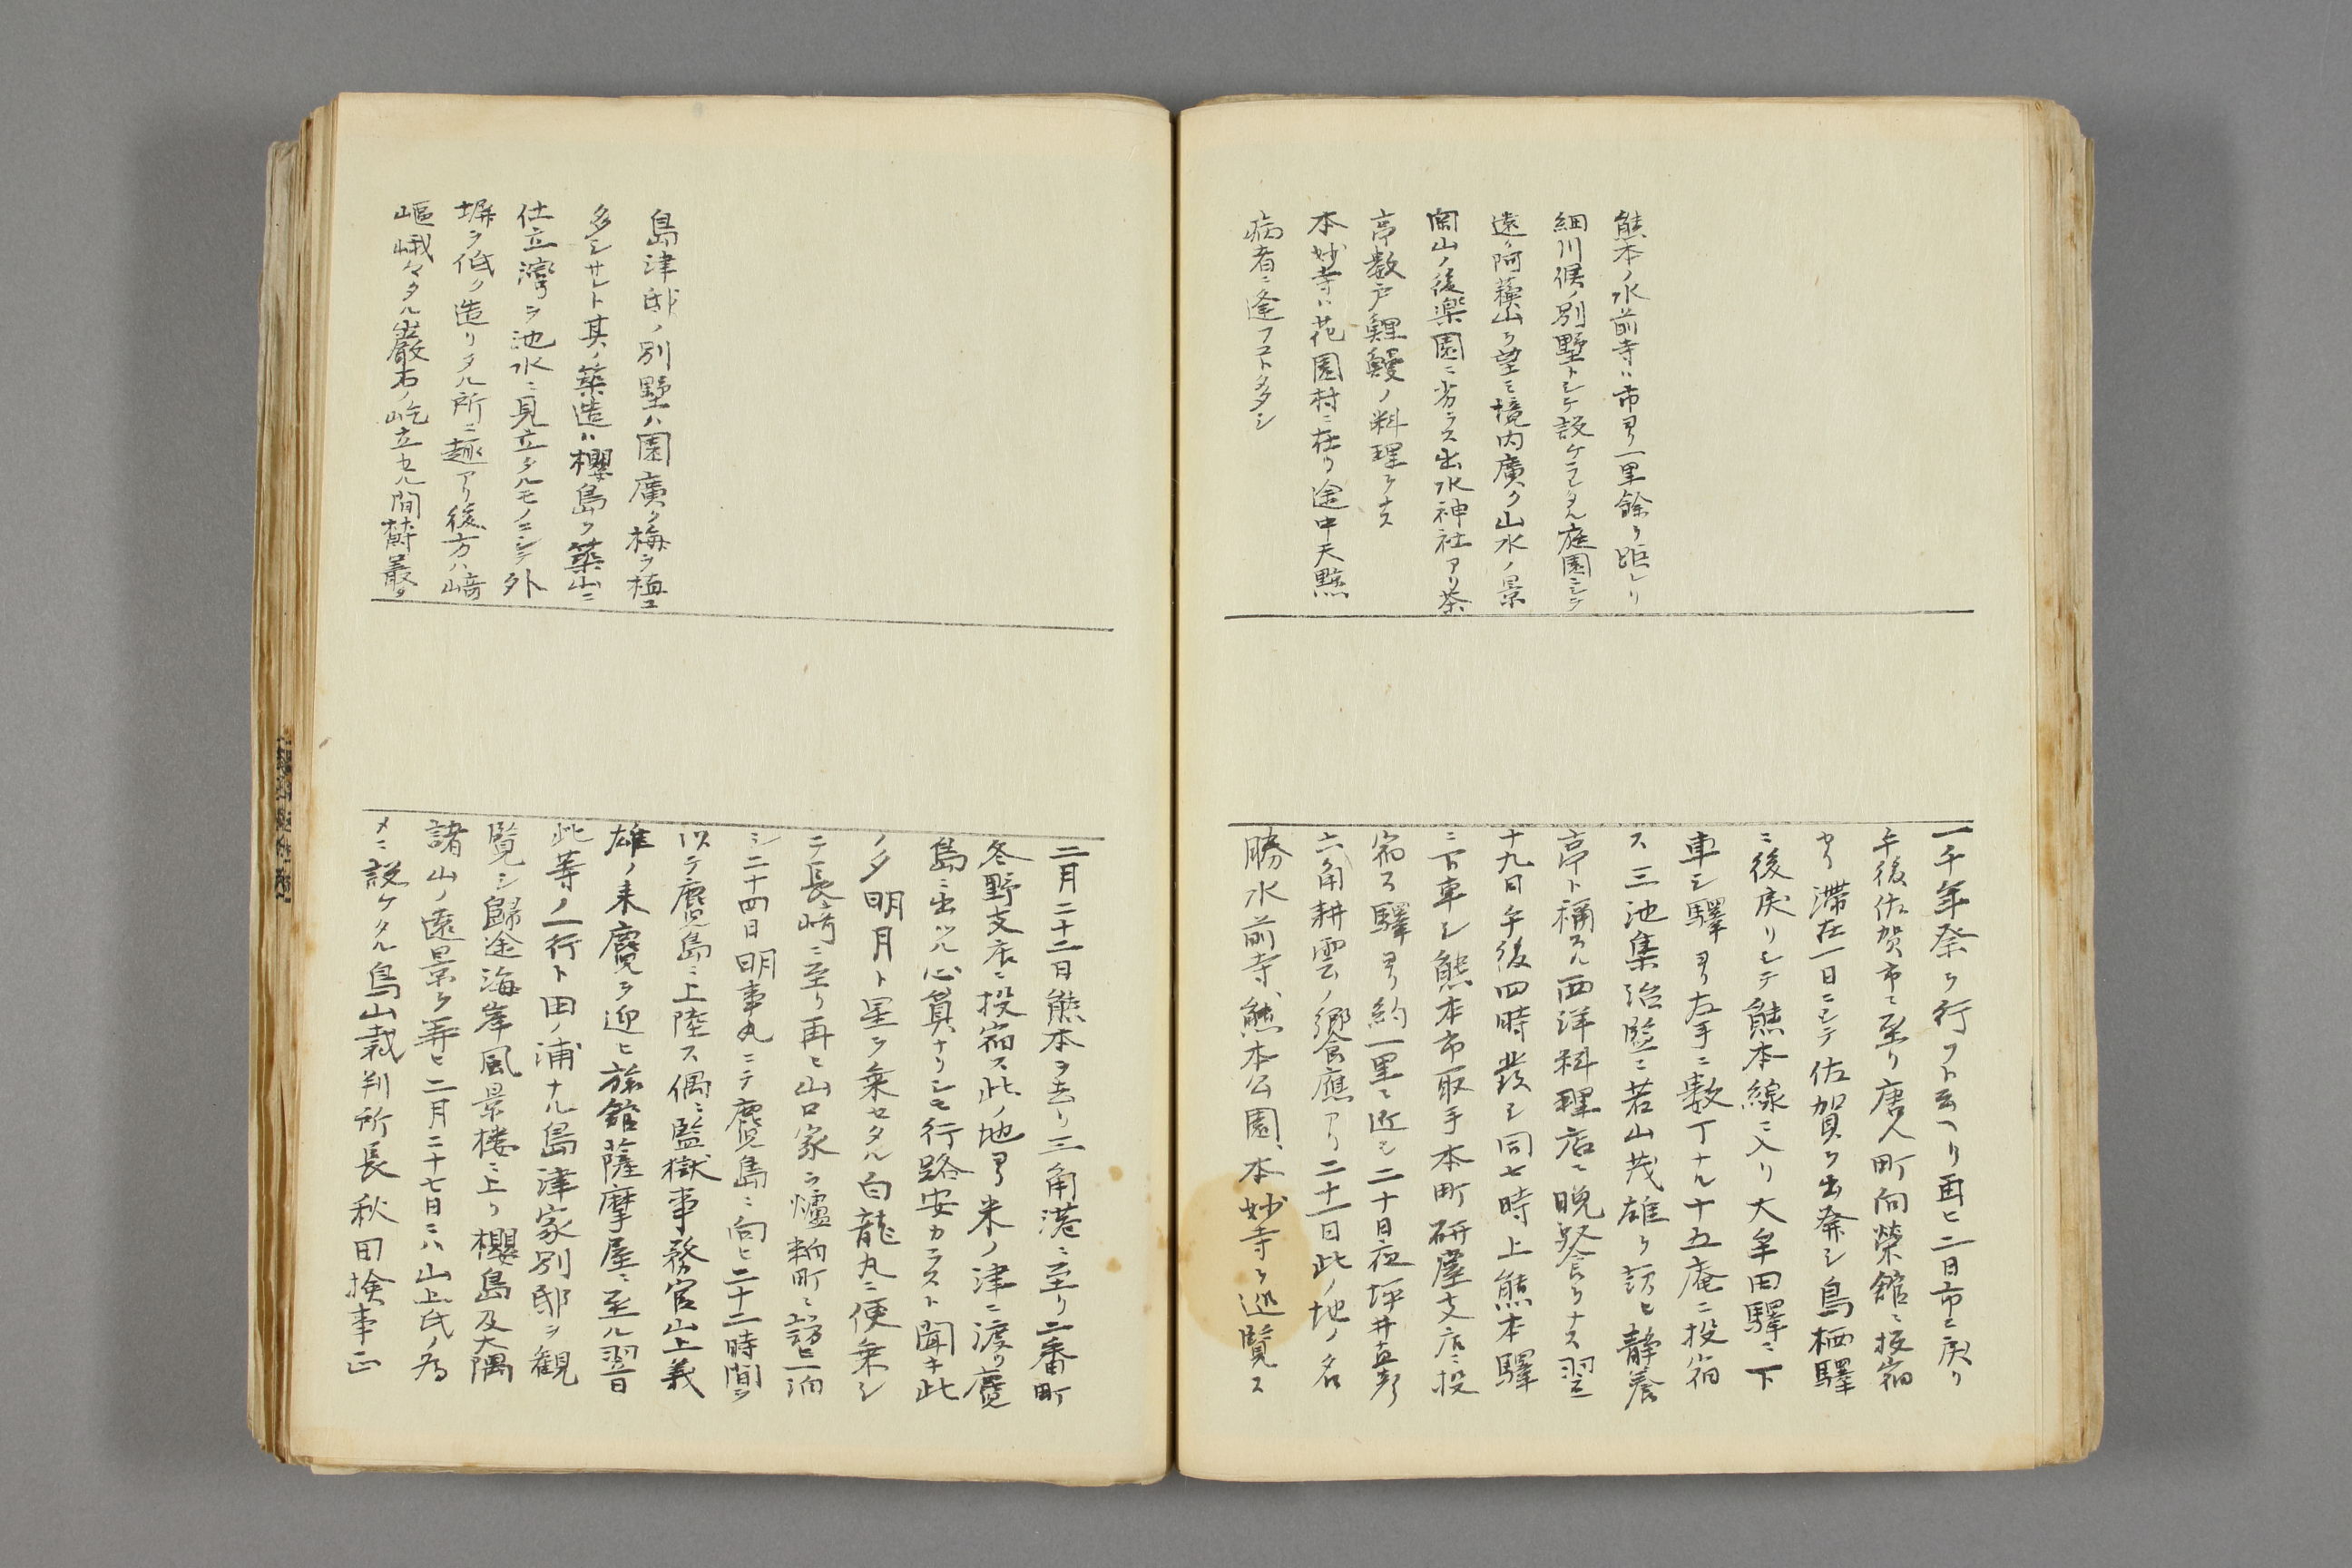 熊本ノ水前寺ハ市ヨリ一里餘ヲ距レリ
細川侯ノ別墅トシテ設ケラレタル庭園ニシテ
遠ク阿蘓山ヲ望ミ境内廣ク山水ノ景
岡山ノ後楽園ニ劣ラス出水神社アリ茶
亭数戸鯉鰻ノ料理ヲナス
本妙寺ハ花園村ニ在リ途中天黥
病者ニ逢フコト多シ
一千年祭ヲ行フト云ヘリ再ヒ二日市ニ戻リ
午後佐賀市ニ至リ唐人町向榮館ニ投宿
ヤリ滞在一日ニシテ佐賀ヲ出発シ鳥栖驛
ニ後戻リシテ熊本線ニ入リ大牟田驛ニ下
車シ驛ヨリ左手ニ数丁ナル十五庵ニ投宿
ス三池集治監ニ若山茂雄ヲ訪ヒ静養
亭ト稱スル西洋料理店ニ晩餐ヲナス翌
十九日午後四時發シ同七時上熊本驛
ニ下車シ熊本市取手本町研屋支店ニ投
宿ス驛ヨリ約一里ニ近シ二十日夜坪井直彭
六角耕雲ノ饗應アリ二十一日此ノ地ノ名
勝水前寺、熊本公園、本妙寺ヲ巡覧ス
島津邸ノ別墅ハ園廣ク梅ヲ植ユ
多シサレト其ノ築造ハ櫻島ヲ築山ニ
仕立灣ヲ池水ニ見立タルモノニシテ外
塀ヲ低ク造リタル所ニ趣アリ後方ハ崎
嶇峨々タル巌石ノ屹立セル間樹叢タ
二月二十二日熊本ヲ去リ三角港ニ至リ二番町
冬野支店ニ投宿ス此ノ地ヨリ米ノ津ニ渡リ麑
島ニ出ツル心算ナリシモ行路安カラスト聞キ此
ノ夕明月ト星ヲ乗セタル白龍丸ニ便乗シ
テ長崎ニ至リ再ヒ山口家ヲ爐粕町ニ訪ヒ一泊
シ二十四日明事丸ニテ麑島ニ向ヒ二十二時間ヲ
以テ麑島ニ上陸ス偶ニ監獄事務官山上義
雄ノ来麑ヲ迎ヒ旅館薩摩屋ニ至ル翌日
此等ノ一行ト田ノ浦ナル島津家別邸ヲ観
覧シ歸途海岸風景楼ニ上リ櫻島及大隅
諸山ノ遠景ヲ弄ヒ二月二十七日ニハ山上氏ノ為
メニ設ケタル鳥山裁判所長秋田検事正